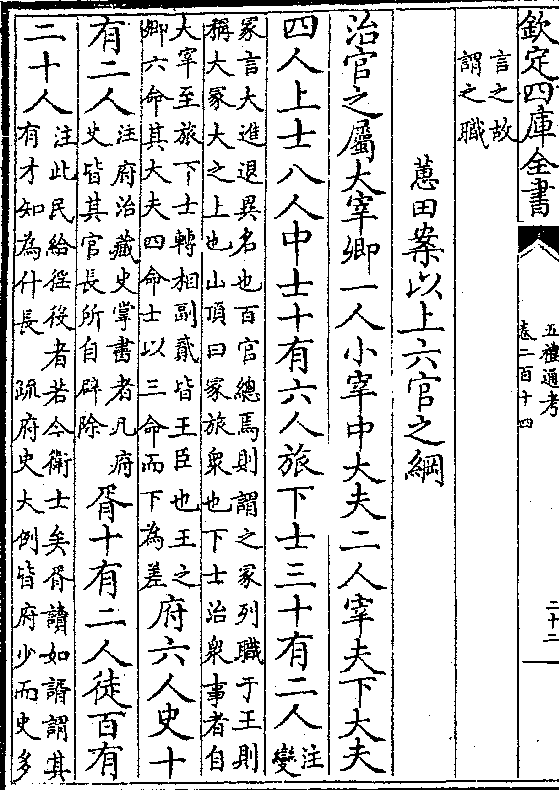 欽定四庫全書
五禮通考
卷二百十四
二十二
言之故
謂之職
蕙田案以上六官之綱
治官之屬大宰卿一人小宰中大夫二人宰夫下大夫
四人上士八人中士十有六人旅下士三十有二人
注
變
冢言大進退異名也百官總焉則謂之冢列職于王則
稱大冢大之上也山頂曰冢旅衆也下士治衆事者自
大宰至旅下士轉相副貳皆王臣也王之
卿六命其大夫四命士以三命而下為差
府六人史十
有二人
注府治藏史掌書者凡府
史皆其官長所自辟除
胥十有二人徒百有
二十人
注此民給徭役者若今衛士矣胥讀如諝謂其
有才如為什長 疏府史大例皆府少而史多